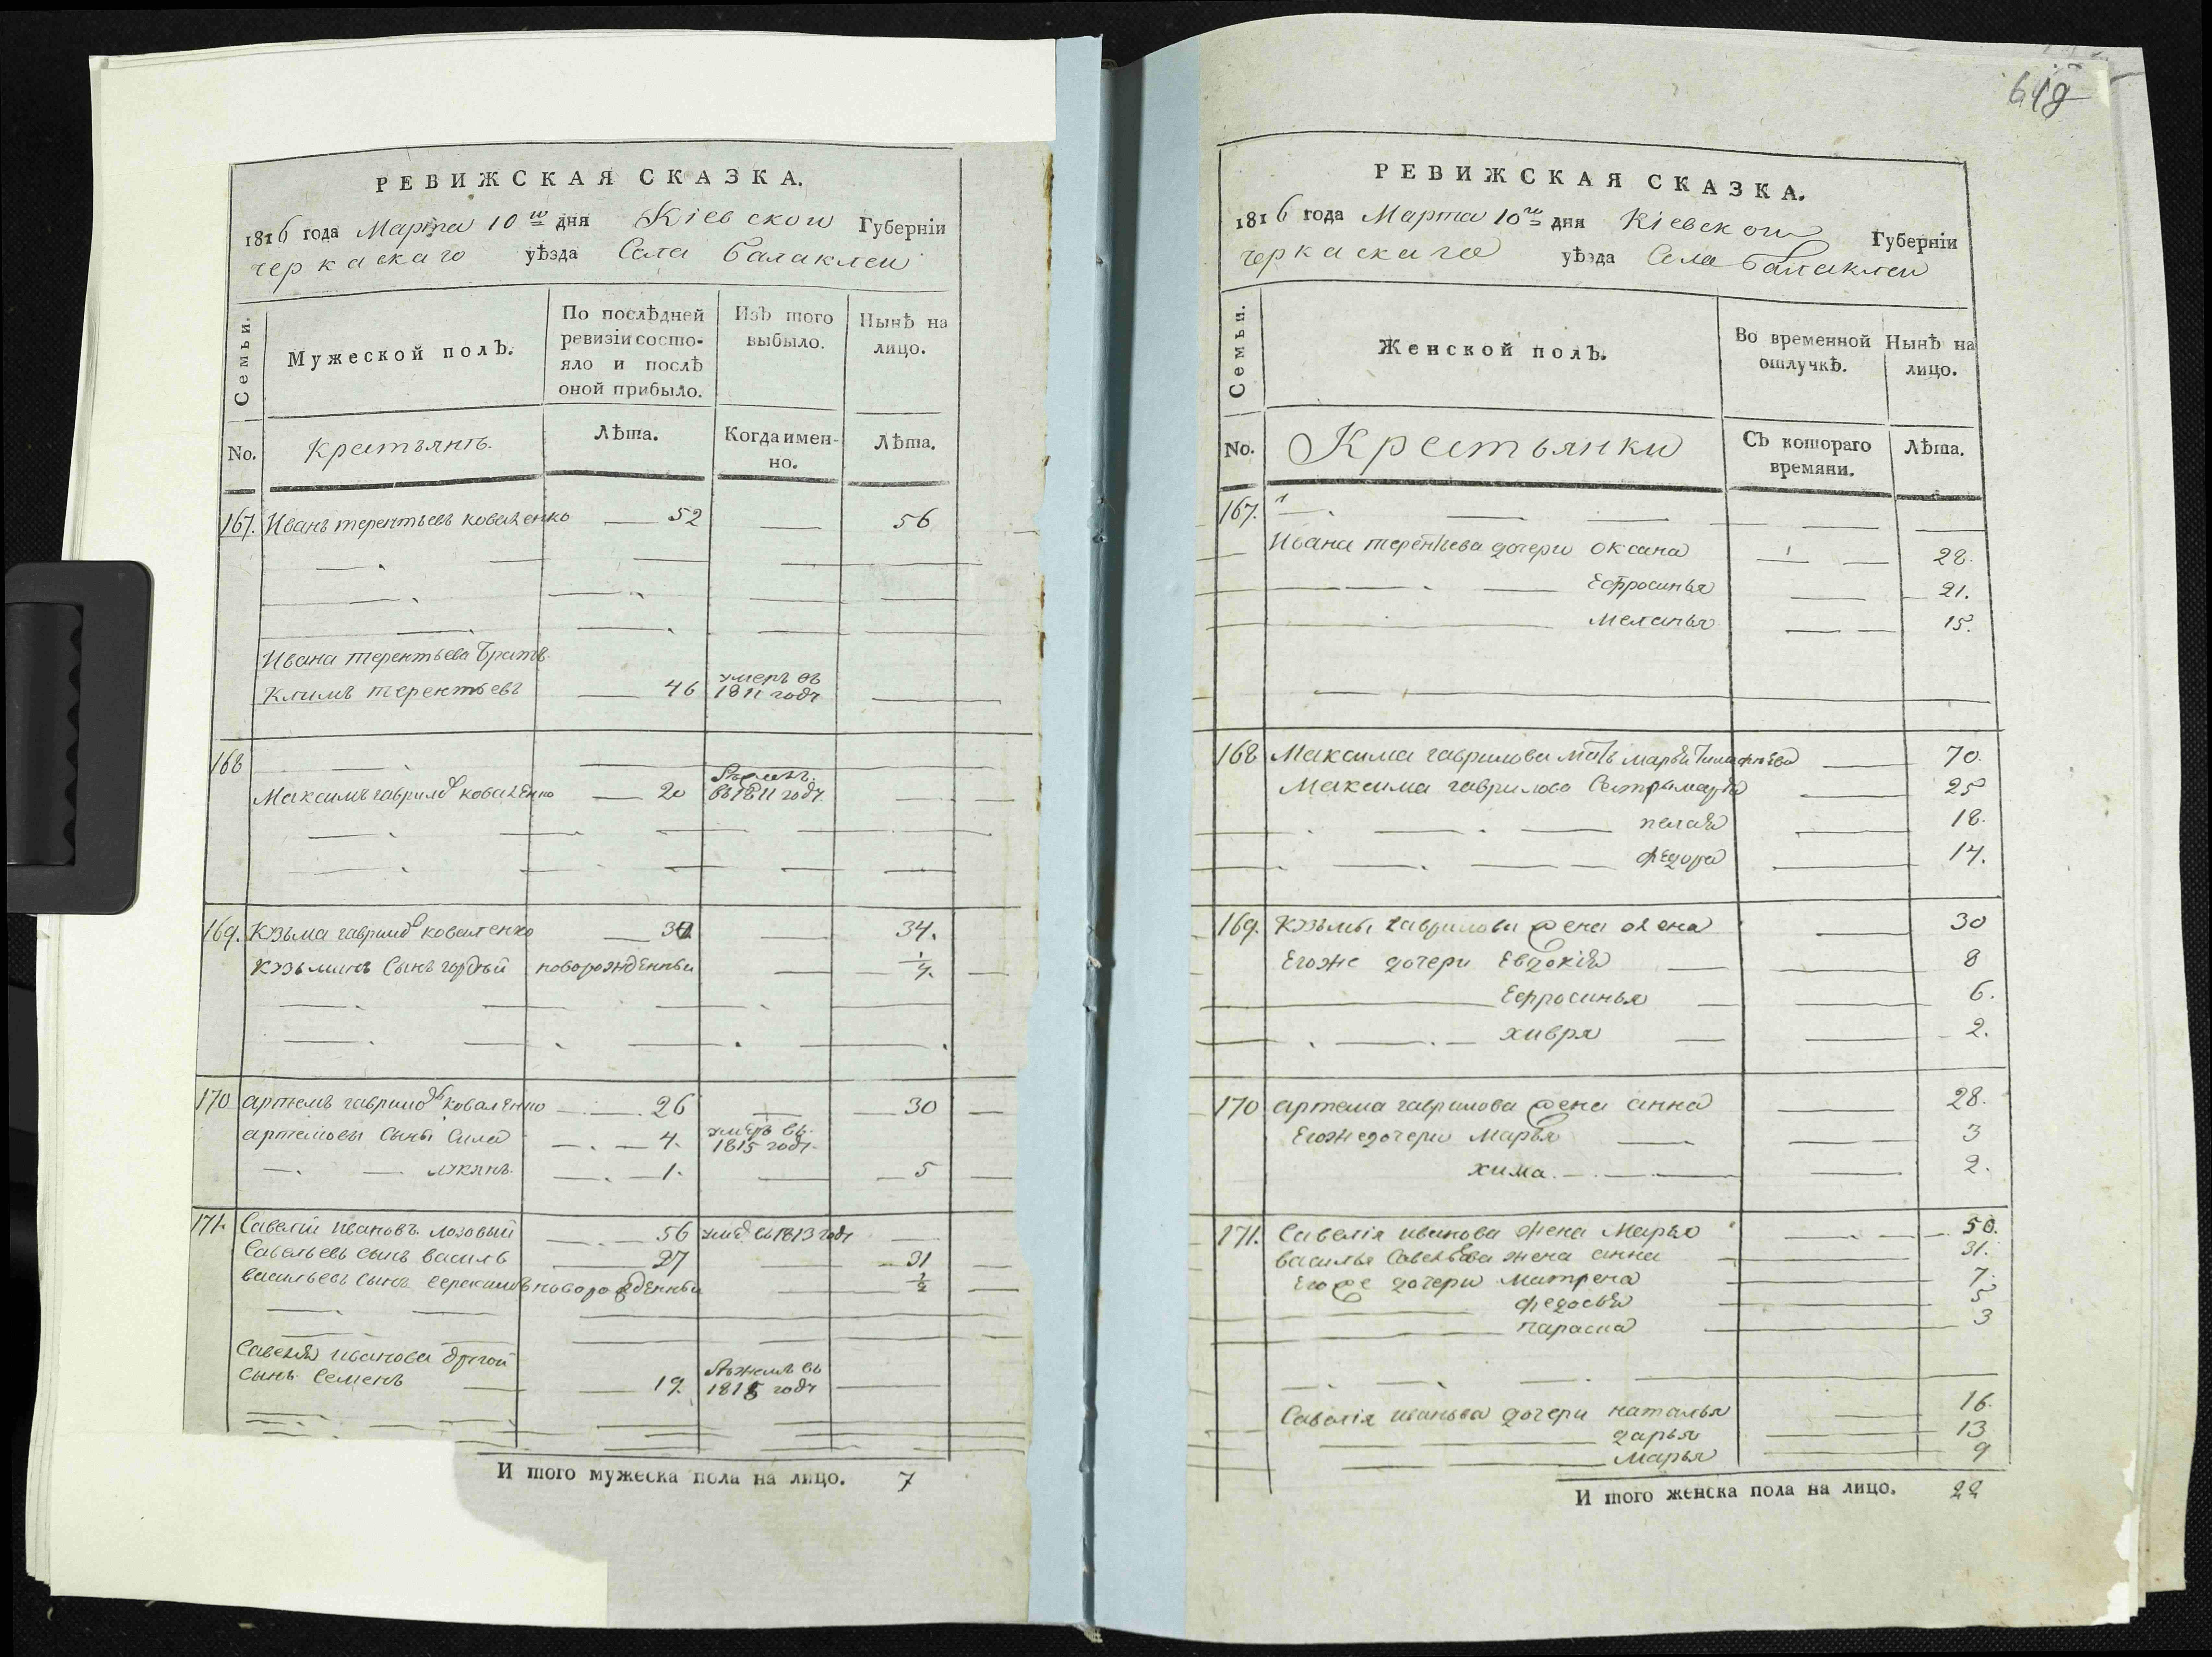 РЕВИЖСКАЯ СКАЗКА.
1816 года Марта 10го дня Кіевской Губерніи
черкаскаго уѣзда Села Балаклеи
Семьи.
Мужеской полЪ.
По послѣдней ревизіи состояло и послѣ оной прибыло.
ИзЪ того выбыло.
Нынѣ на лицо.
No.
Крестьянъ.
Лѣта.
Когда именно.
Лѣта.
167. Иванъ терентьевъ коваленко 52 56
Ивана терентьева братъ
Климъ терентьевъ 46 умеръ въ 1811 году
168
Максимъ гаврилов коваленко 20 въ 1811 году
169. Кузьма гаврилов коваленко 30 34.
Кузьминъ Сынъ гордѣй новорожденный 1/4.
170 артемъ гаврилов коваленко 26 30
артемовы Сыны Сила 4. умеръ въ 1815 году
лукянъ 1. 5
171. Савелій ивановъ лозовый 56 умер въ 1813 году
Савельевъ сынъ василь 27 31
васильевъ сынъ новорожденный 1/2
Савелія иванова другой
Сынъ Семенъ 19. въ 1815 году
И того мужеска пола на лицо. 7
РЕВИЖСКАЯ СКАЗКА.
1816 года Марта 10го дня Кіевской Губерніи
черкаскаго уѣзда Села Балаклеи
Семьи.
Женской полЪ.
Во временной отлучкѣ.
Нынѣ на лицо.
No.
Крестьянки
СЪ котораго времяни.
Лѣта.
167.
Ивана терентьева дочери Оксана 28.
Ефросинья 21.
Меланья 15.
168 Максима гаврилова мать марья 70.
Максима гаврилова Сестры марья 25
пелагея 18.
федора 14.
169. Кузьмы гаврилова жена олена 30
Егоже дочери Евдокія 8
Ефросинья 6.
хивря 2.
170 артема гаврилова жена анна 28.
Егоже дочери Марья 3
хима. 2.
171. Савелія иванова жена Марья 50.
василья Савельева жена анна 31.
Егоже дочери Матрена 7.
федосья 5
параска 3
Савелія иванова дочери наталья 16.
дарья 13
Марья 9
И того женска пола на лицо. 22